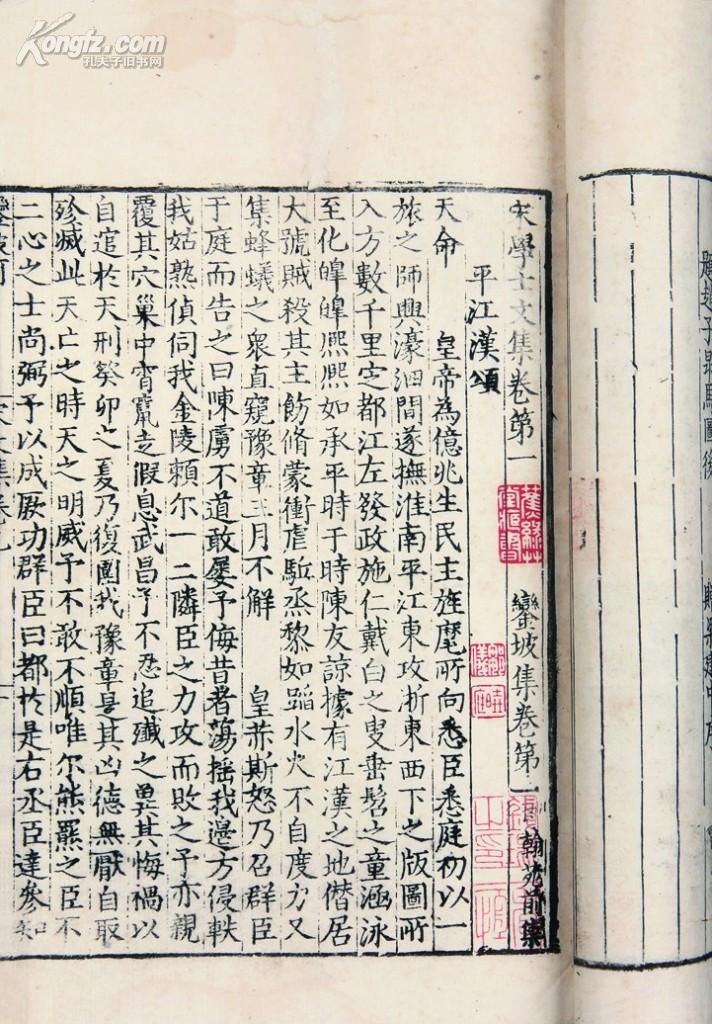 Kongfz.com
孔夫子旧书网
題趙子昂馬圖後
宋學士文集卷第一 鑾坡集卷第一 翰苑前集
平江漢頌
天命 皇帝為億兆生民主旌麾所向悉臣悉庭初以一
旅之師興濠泗間遂撫淮南平江東攻浙東西下之版圖所
入方數千里定都江左發政施仁戴白之叟垂髫之童涵泳
至化皥皥熈熈如承平時于時陳友諒據有江漢之地僭居
大號賊殺其主飭脩蒙衝虐駈烝黎如蹈水火不自度力又
集蜂蟻之衆直窺豫章三月不解 皇赫斯怒乃召群臣
于庭而告之曰陳虜不道敢屡予侮昔者蕩揺我邉方侵軼
我姑熟偵伺我金陵頼尔一二隣臣之力攻而敗之予亦親
覆其穴巢中宵竄走假息武昌予不忍追殲之兾其悔禍以
自逭於天刑癸卯之夏乃復圍我豫章是其凶德無厭自取
殄滅此天亡之時天之明威予不敢不順唯尔熊羆之臣不
二心之士尚弼予以成厥功群臣曰都於是右丞臣達參知